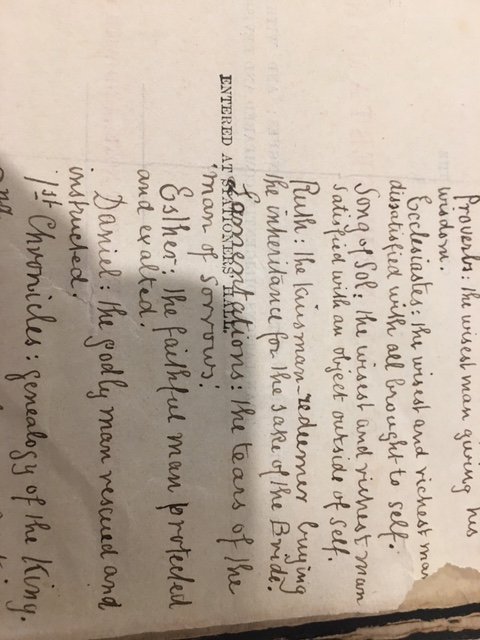 Proverbs: the wisest man giving his
wisdom.
Ecclesiastes: the wisest and richest man
dissatisfied with all brought to self.
Song of Sol: the wisest and richest man
satisfied with an object outside of self.
Ruth: the kinsman-redeemer buying
the inheritance for the sake of the Bride.
ENTERED AT STATIONERS' HALL.
Lamentations: the tears of the
"man of sorrows."
Esther: the faithful man protected
and exalted.
Daniel: the godly man rescued and
instructed.
1st Chronicles: genealogy of the King.
2nd